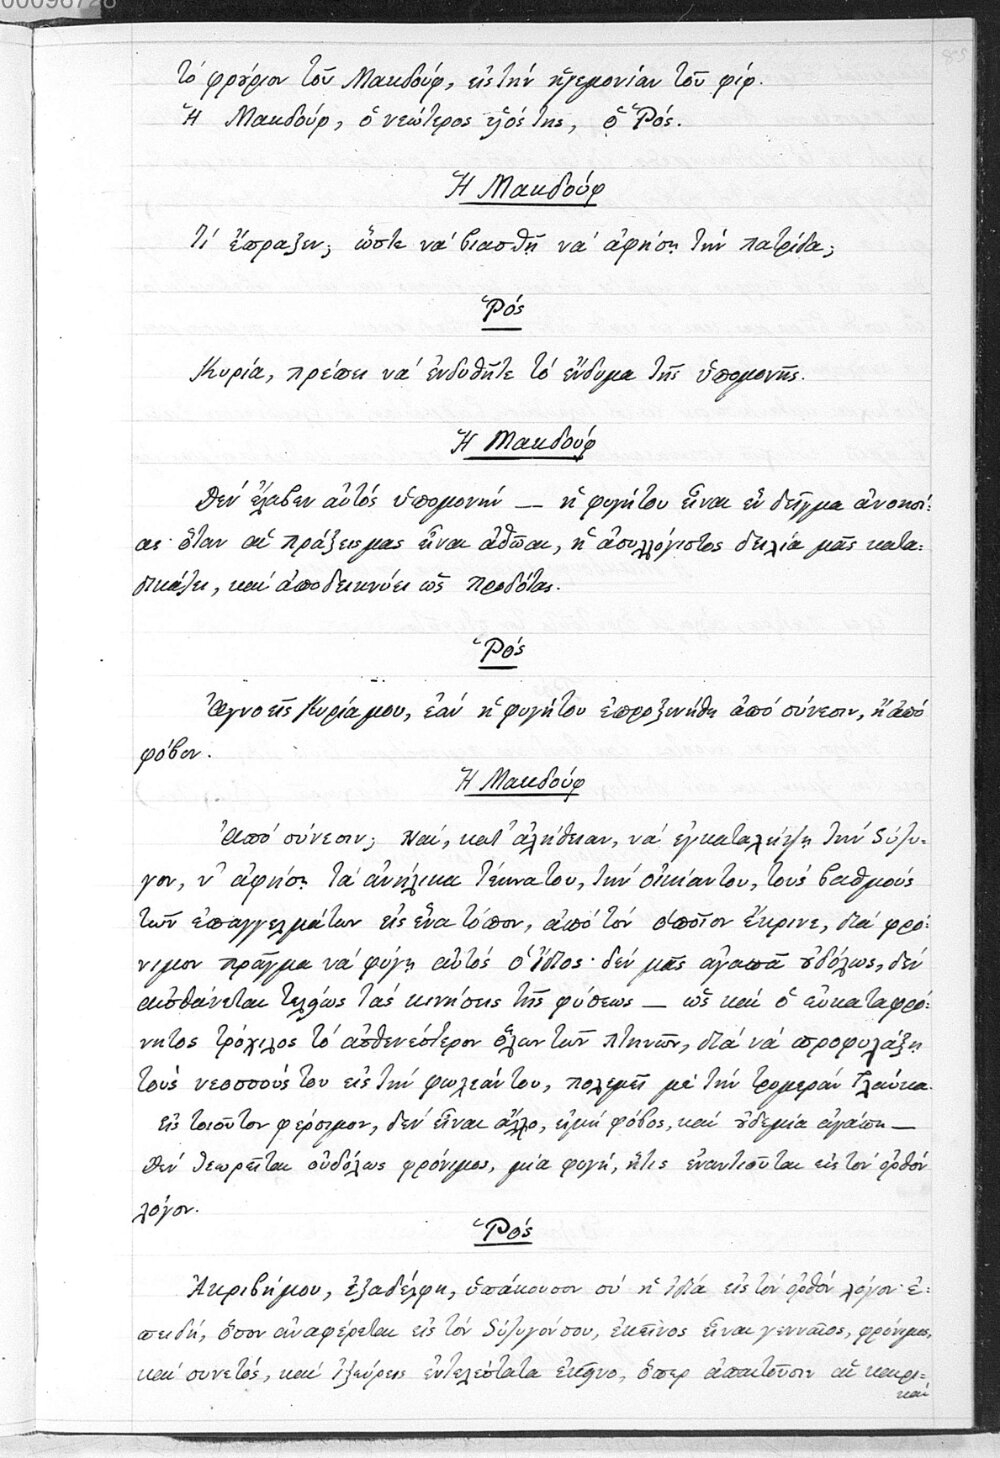 00096728
τὸ φρούριον τοῦ Μακδούφ, εἰς τὴν ἡγεμονίαν τοῦ φίφ.
Ἡ Μακδούφ, ὁ νεώτερος υἱός της, ὁ Ῥός.
Ἡ Μακδούφ
Τί ἔπραξεν; ὥστε νὰ βιασθῇ νὰ ἀφήσῃ τὴν πατρίδα;
Ῥός
Κυρία, πρέπει νὰ ἐνδυθῆτε τὸ ἔνδυμα τῆς ὑπομονῆς.
Ἡ Μακδούφ
Δὲν ἔλαβεν αὐτὸς ὑπομονήν — ἡ φυγή του εἶναι ἓν δεῖγμα ἀνοησί:
ας· ὅταν αἱ πράξεις μας εἶναι ἀθῶαι, ἡ ἀσυλλόγιστος δειλία μᾶς κατα:
δικάζει, καὶ ἀποδεικνύει ὡς προδότας.
Ῥός
Ἀγνοεῖς Κυρία μου, ἐὰν ἡ φυγή του ἐπροξενήθη ἀπὸ σύνεσιν, ἢ ἀπὸ
φόβον.
Ἡ Μακδούφ
Ἀπὸ σύνεσιν; Ναί, κατ' ἀλήθειαν, νὰ ἐγκαταλείψῃ τὴν Σύζυ-
γον, ν' ἀφήσῃ τὰ ἀνήλικα τέκνα του, τὴν οἰκίαν του, τοὺς βαθμοὺς
τῶν ἐπαγγελμάτων εἰς ἕνα τόπον, ἀπὸ τὸν ὁποῖον ἔκρινε, διὰ φρό:
νιμον πρᾶγμα νὰ φύγῃ αὐτὸς ὁ ἴδιος· δὲν μᾶς ἀγαπᾶ οὐδόλως, δὲν
αἰσθάνεται τελείως τὰς κινήσεις τῆς φύσεως — ὡς καὶ ὁ εὐκαταφρό:
νητος τρόχιλος τὸ ἀσθενέστερον ὅλων τῶν πτηνῶν, διὰ νὰ προφυλάξῃ
τοὺς νεοσσούς του εἰς τὴν φωλεάν του, πολεμεῖ μὲ τὴν τρομερὰν Γλαῦκα.
εἰς τοιοῦτον φέρσιμον, δὲν εἶναι ἄλλο, εἰμὴ φόβος, καὶ οὐδεμία ἀγάπη —
Δὲν θεωρεῖται οὐδόλως φρόνιμος, μία φυγή, ἥτις ἐναντιοῦται εἰς τὸν ὀρθὸν
λόγον.
Ῥός
Ἀκριβή μου, ἐξαδέλφη, ὑπάκουσον σὺ ἡ ἰδία εἰς τὸν ὀρθὸν λόγον· ἐ:
πειδή, ὅσον ἀναφέρεται εἰς τὸν Σύζυγόν σου, ἐκεῖνος εἶναι γενναῖος, φρόνιμος,
καὶ συνετός, καὶ ἐξεύρει ἐντελέστατα ἐκεῖνο, ὅπερ ἀπαιτοῦσιν αἱ καιρι=
καὶ